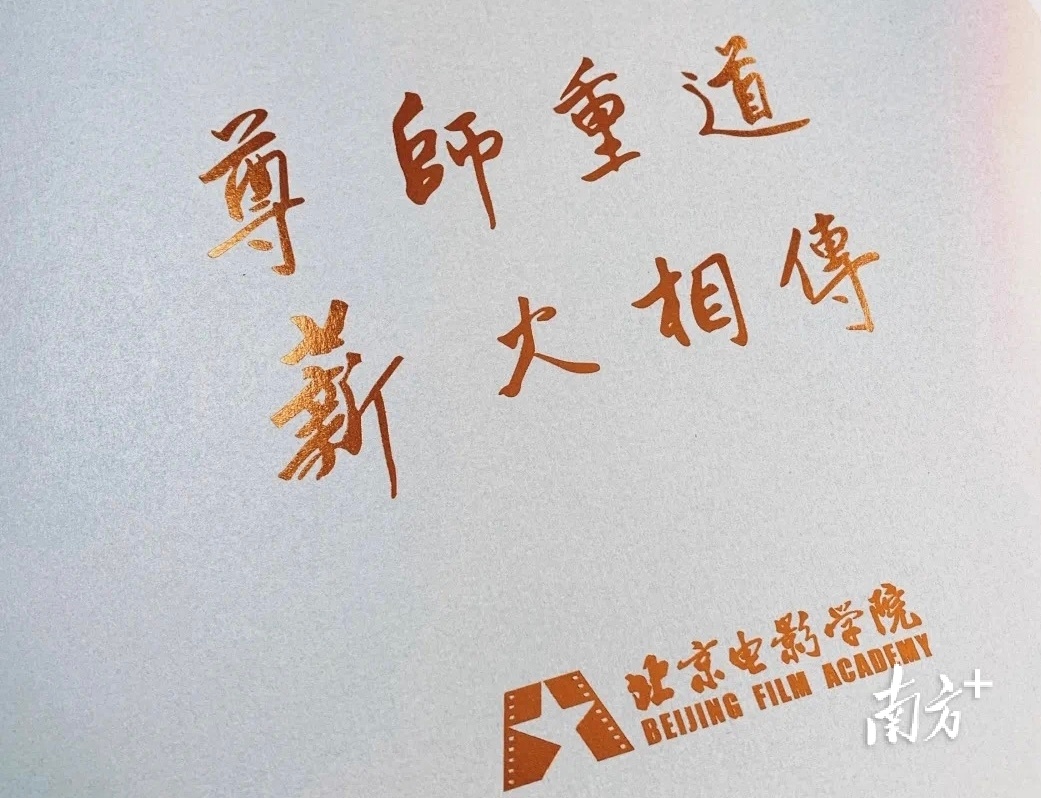 尊師重道
薪火相傳
北京电影学院
BEIJING FILM ACADEMY
南方+